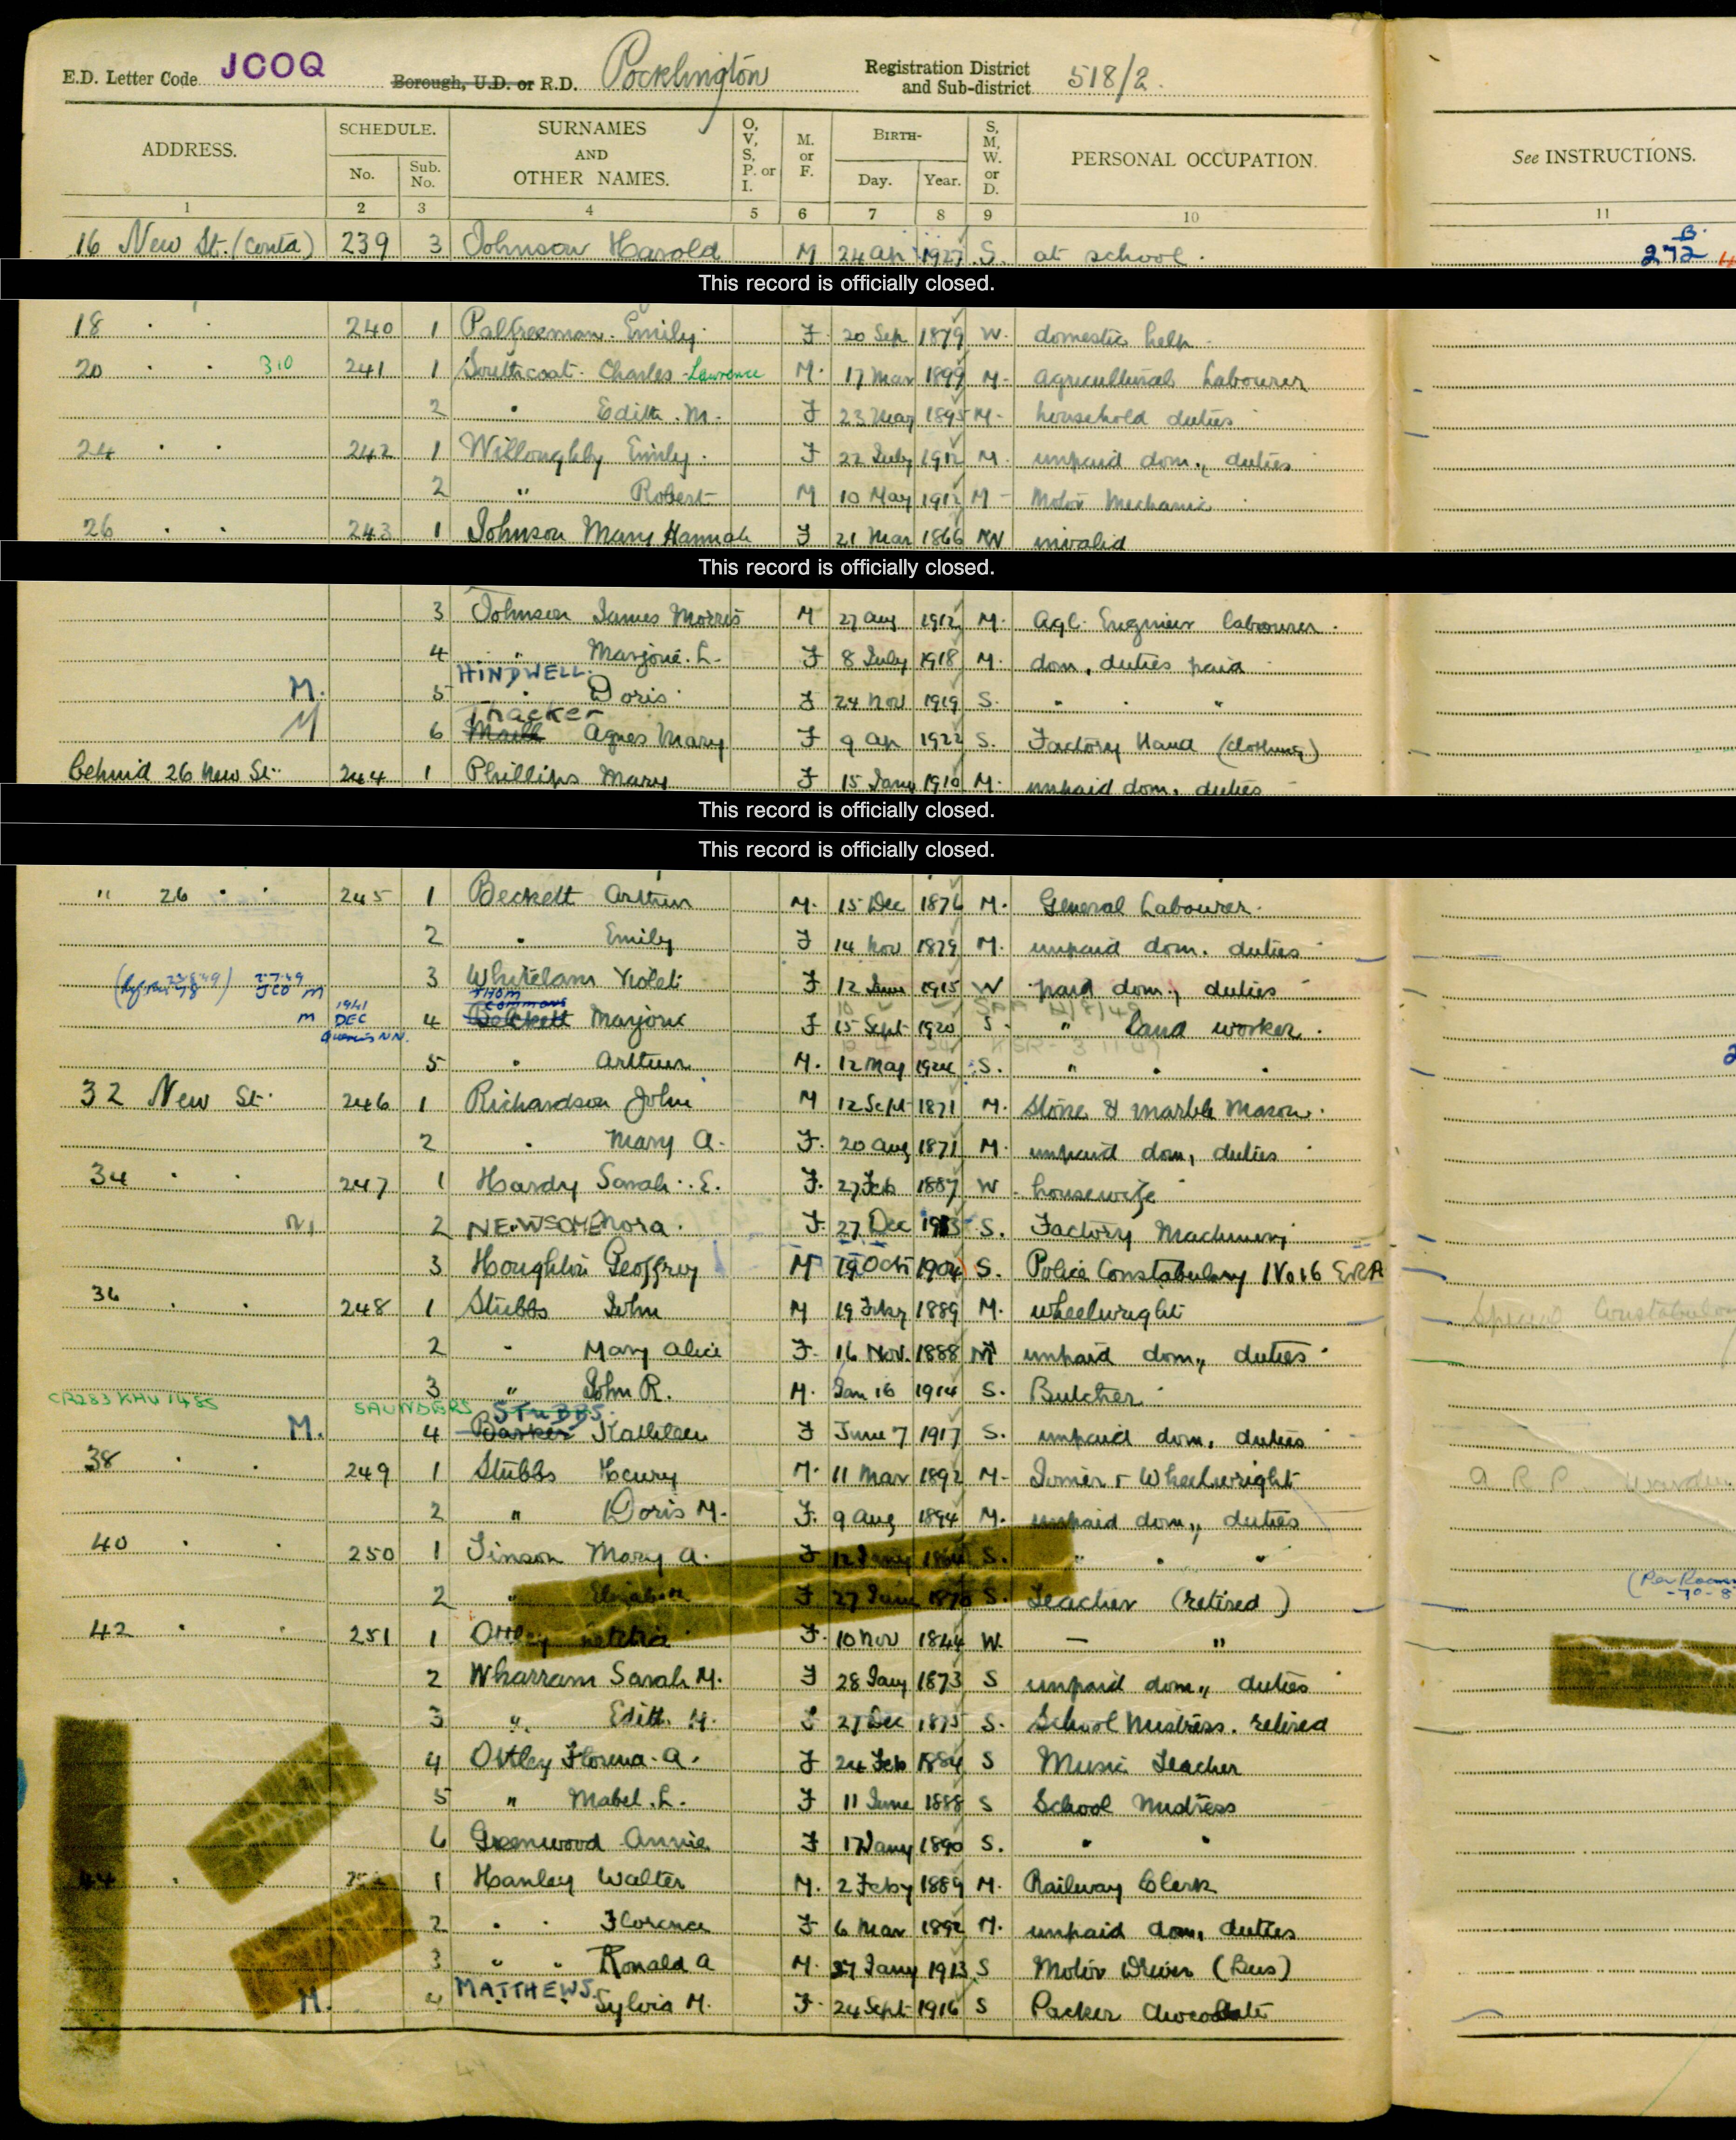 E.D. Letter Code JCOQ Borough, U.D. or R.D. Pocklington Registration District and Sub-district 518/2.
ADDRESS. SCHEDULE. No. Sub. No. SURNAMES AND OTHER NAMES. O, V, S, P. or I. M. or F. BIRTH- Day. Year. S, M, W. or D. PERSONAL OCCUPATION. See INSTRUCTIONS.
1 2 3 4 5 6 7 8 9 10 11
16 New St. (contd) 239 3 Johnson Harold M 24 Ap 1927 S. at school. 272 B.
This record is officially closed.
18 " " 240 1 Palfreeman Emily F 20 Sep 1879 W. domestic help
20 " " 310 241 1 Southcoat Charles Lawrence M. 17 Mar 1899 M. Agricultural Labourer
2 " Edith M. F 23 May 1895 M. household duties
24 " " 242 1 Willoughby Emily F 22 July 1912 M. unpaid dom., duties
2 " Robert M 10 May 1912 M Motor Mechanic
26 " " 243 1 Johnson Mary Hannah F 21 Mar 1866 W invalid
This record is officially closed.
3 Johnson James Morris M 27 Aug 1912 M. Agl. Engineer labourer.
4 " Marjorie. L. F 8 July 1918 M. dom, duties paid
HINDWELL.
M. 5 " Doris F 24 Nov 1919 S. " " "
Thacker
M 6 Agnes Mary F 9 Ap 1922 S. Factory Hand (clothing)
behind 26 New St. 244 1 Phillips Mary F 15 Jany 1910 M. unpaid dom. duties
This record is officially closed.
This record is officially closed.
" 26 " " 245 1 Beckett Arthur M. 15 Dec 1876 M. General Labourer.
2 " Emily F 14 Nov 1879 M. unpaid dom. duties
3 Whitelam Violet F 12 June 1915 W paid dom., duties
THOM
COMMONS
m DEC 4 Beckett Marjorie F 15 Sept 1920 S. " land worker.
5 " Arthur M. 12 May 1924 S. " " "
32 New St. 246 1 Richardson John M 12 Sept 1871 M. Stone & marble Mason.
2 " Mary A. F. 20 Aug 1871 M. unpaid dom, duties
34 " " 247 1 Hardy Sarah. E. F. 27 Feb 1887 W. housewife
2 NEWSOME Nora. F. 27 Dec 1913 S. Factory Machinery
3 Houghton Geoffrey M 19 Oct 1904 S. Police Constabulary No 16
36 " " 248 1 Stubbs John M 19 Feby 1889 M. wheelwright Special
2 " Mary Alice F. 16 Nov. 1888 M unpaid dom., duties
3 " John R. M. Jan 16 1914 S. Butcher
CR283 KHU 1485 SAUNDERS STUBBS.
M. 4 Barker Kathleen F June 7 1917 S. unpaid dom, duties
38 " " 249 1 Stubbs Henry M. 11 Mar 1892 M. Joiner & Wheelwright A R P.
2 " Doris M. F. 9 Aug 1894 M. unpaid dom., duties
40 " " 250 1 Tinson Mary A. F 12 Jany S. " " "
2 " Elizabeth F 27 June 1870 S. Teacher (retired)
42 " " 251 1 F. 10 Nov 1844 W. — "
2 Wharram Sarah M. F 28 Jany 1873 S unpaid dom., duties
3 " Edith. M. F 27 Dec 1875 S. School Mistress. retired
4 Ottley Florence. A. F 24 Feb 1884 S Music Teacher
5 " Mabel. L. F 11 June 1888 S School Mistress
6 Greenwood Annie F 17 Jany 1890 S. " "
44 " 252 1 Hanley Walter M. 2 Feby 1889 M. Railway Clerk
2 " " Florence F 6 Mar 1892 M. unpaid dom, duties
3 " " Ronald A M. 27 Jany 1913 S Motor Driver (Bus)
MATTHEWS.
M. 4 " Sylvia M. F. 24 Sept 1916 S Packer Chocolate